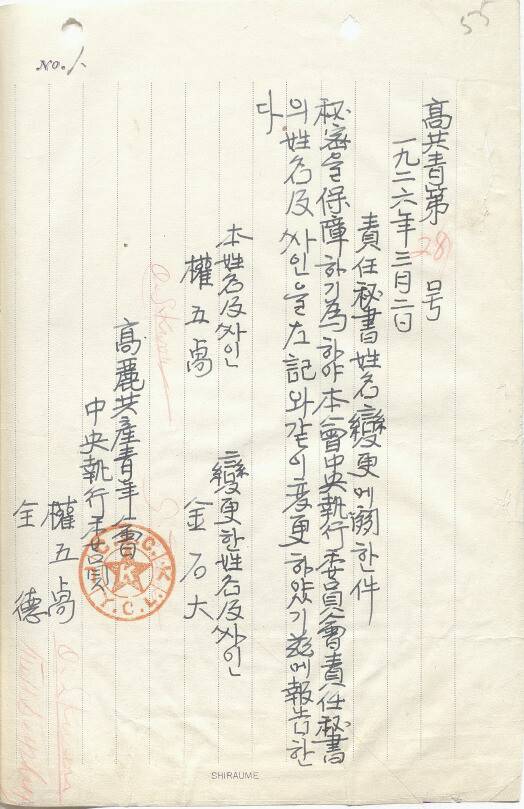 55
No. 1.
高共青第 28 号
一九二六年三月二日
責任秘書姓名變更에關한件
秘密을保障하기為하야本會中央執行委員會責任秘書
의姓名及싸인을左記와같이変更하얏기玆에報告한
다
本姓名及싸인 變更한姓名及싸인
權五卨 金石大
高麗共產青年會
中央執行委員
權五卨
全德
C. E. C. K. Y. C. L.
K
SHIRAUME